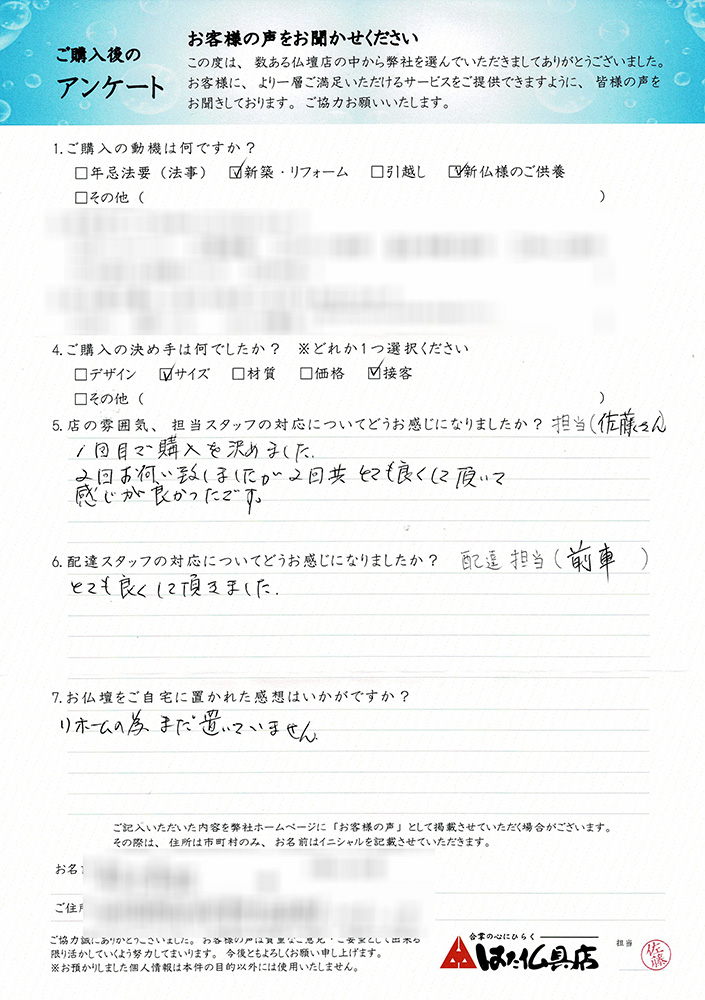 ご購入後の
アンケート
お客様の声をお聞かせください
この度は、数ある仏壇店の中から弊社を選んでいただきましてありがとうございました。
お客様に、より一層ご満足いただけるサービスをご提供できますように、皆様の声を
お聞きしております。ご協力お願いいたします。
1.ご購入の動機は何ですか?
□年忌法要(法事) ☑新築・リフォーム □引越し ☑新仏様のご供養
□その他( )
4.ご購入の決め手は何でしたか? ※どれか1つ選択ください
□デザイン ☑サイズ □材質 □価格 ☑接客
□その他( )
5.店の雰囲気、担当スタッフの対応についてどうお感じになりましたか? 担当(佐藤さん
1回目で購入を決めました.
2回お伺い致しましたが2回共とても良くして頂いて
感じが良かったです。
6.配達スタッフの対応についてどうお感じになりましたか? 配達担当(前車 )
とても良くして頂きました.
7.お仏壇をご自宅に置かれた感想はいかがですか?
リホームの為まだ置いていません
ご記入いただいた内容を弊社ホームページに「お客様の声」として掲載させていただく場合がございます。
その際は、住所は市町村のみ、お名前はイニシャルを記載させていただきます。
お名
ご住
ご協力誠にありがとうございました。お客様の声は貴重なご意見・ご要望として出来る
限り活かしていくよう努力してまいります。今後ともよろしくお願い申し上げます。
※お預かりしました個人情報は本件の目的以外には使用いたしません。
合掌の心にひらく
はた仏具店
担当
佐藤